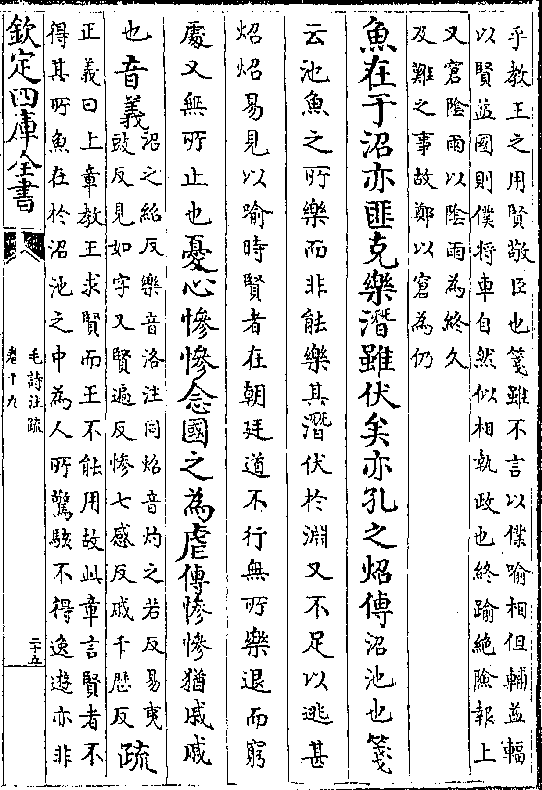 乎教王之用賢敬臣也箋雖不言以僕喻相但輔益輻
以賢益國則僕將車自然似相執政也終踰絶險報上
又窘隂雨以隂雨為終久
及難之事故鄭以窘為仍
魚在于沼亦匪克樂潛雖伏矣亦孔之炤傳沼池也箋
云池魚之所樂而非能樂其潛伏於淵又不足以逃甚
炤炤易見以喻時賢者在朝廷道不行無所樂退而窮
處又無所止也憂心慘慘念國之為虐傳慘慘猶戚戚
也音義沼之紹反樂音洛注同炤音灼之若反易夷
豉反見如字又賢遍反慘七感反戚千歴反疏
正義曰上章教王求賢而王不能用故此章言賢者不
得其所魚在於沼池之中為人所驚駭不得逸遊亦非
欽定四庫全書
毛詩注疏
卷十九
二十五